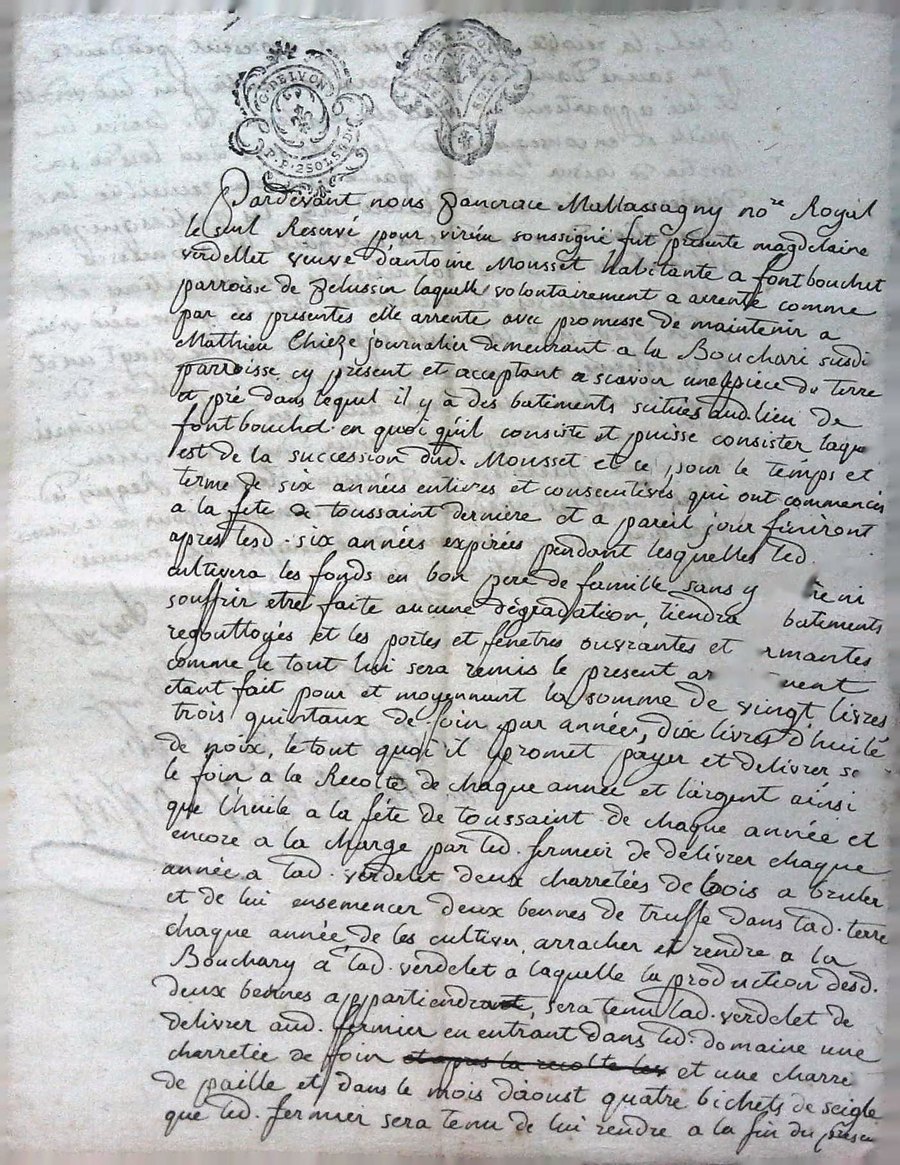 G. DE LYON
P.P. 2 SOLS 4 D.
Pardevant nous Pancrace Mallassagny no.re Royal
le seul Reservé pour virieu soussigné fut présente magdelaine
verdellet veuve d'antoine Mousset habitante a fontbouchet
parroisse de Pelussin laquelle volontairement a arrenté comme
par ces présentes elle arrente avec promesse de maintenir a
Mathieu Chieze journalier demeurant a la Bouchari susdi
parroisse cy present et acceptant a scavoir une pièce de terre
et pré dans lequel il y à des batiments scitués aud. lieu de
fontbouchd en quoi qu'il consiste et puisse consister laque
est de la succession dud. Mousset et ce pour le temps et
terme de six années entieres et consecutives qui ont commencés
a la fête de toussaint derniere et a pareil jour finiront
apres lesd. six années expirées pendant lesquelles led.
cultivera les fonds en bon pere de famille sans y
souffrir etre faite aucune dégradation, tiendra batiments
regouttoyés et les portes et fenetres ouvrantes et rmantes
comme le tout lui sera remis le present ar ment
etant fait pour et moyennant la somme de vingt livres
trois quintaux de foin par années, dix livres d'huile
de noix, le tout quoi il promet payer et delivrer se
le foin a la Recolte de chaque année et l'argent ainsi
que l'huile a la féte de toussaint de chaque année et
encore a la charge par led. fermier de délivrer chaque
année a lad. verdelet deux charretées de bois a bruler
et de lui ensemencer deux bennes de truffe dans lad. terre
chaque année de les cultiver, arracher et rendre a la
Bouchary a lad. verdelet a laquelle la production desd.
deux bennes appartiendra, sera tenu lad. verdelet de
delivrer aud. fermier en entrant dans led. domaine une
charretée de foin et apres la recolte les et une charre
de paille et dans le mois d'aoust quatre bichets de seigle
que led. fermier sera tenu de lui rendre a la fin du presen